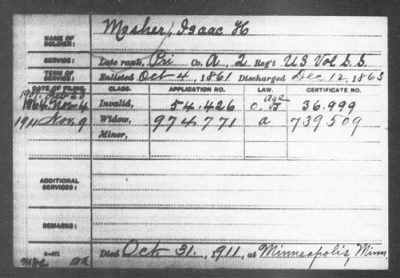 NAME OF SOLDIER: Mosher, Isaac H
SERVICE: Late rank, Pri Co. A, 2 Reg't US Vol S.S.
TERM OF SERVICE: Enlisted Oct 4, 1861 Discharged Dec 12, 1863
DATE OF FILING. CLASS. APPLICATION NO. LAW. CERTIFICATE NO.
1864 Nov 4 Invalid, 54.426 36.999
1911 Nov. 9 Widow, 974.771 a 739509
Minor,
ADDITIONAL SERVICES:
REMARKS:
Died Oct 31, 1911, at Minneapolis, Minn